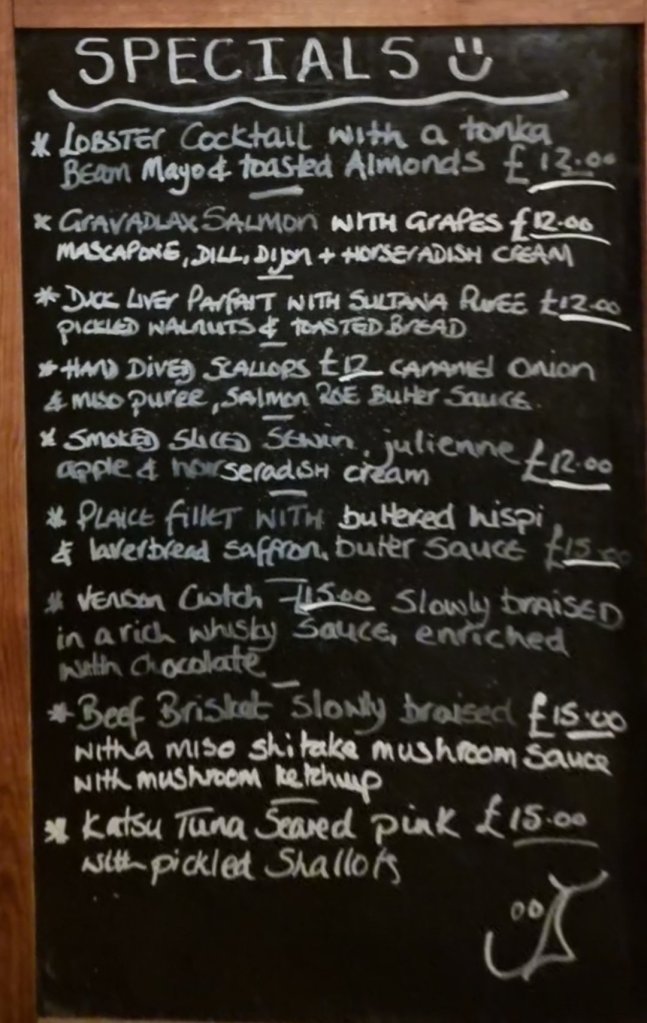 SPECIALS
* LOBSTER Cocktail with a tonka
BEAN Mayo & toasted Almonds £12.00
* GRAVADLAX SALMON WITH GRAPES £12.00
MASCAPONE, DILL, Dijon + HORSERADISH CREAM
* DUCK LIVER PARFAIT WITH SULTANA PUREE £12.00
PICKLED WALNUTS & TOASTED BREAD
* HAND DIVED SCALLOPS £12 CARAMEL ONION
& miso puree, Salmon ROE Butter Sauce.
* SMOKED SLICED SEWIN, julienne
apple & horseradish cream £12.00
* PLAICE fillet WITH buttered hispi
& laverbread saffron, butter sauce £15.00
* VENISON Cwtch £15.00 Slowly braised
in a rich whisky sauce, enriched
with chocolate
* Beef Brisket slowly braised £15.00
with a miso shitake mushroom sauce
with mushroom ketchup
* Katsu Tuna Seared pink £15.00
with pickled Shallots